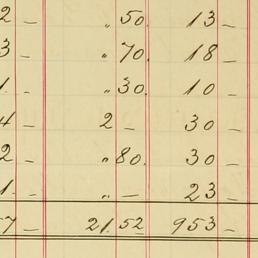 2 – „ 50. 13 –
3 – „ 70. 18 –
1. – „ 30. 10 –
4 – 2 – 30 –
2 – „ 80. 30 –
1. – „ – 23 –
7 – 21. 52 953 –